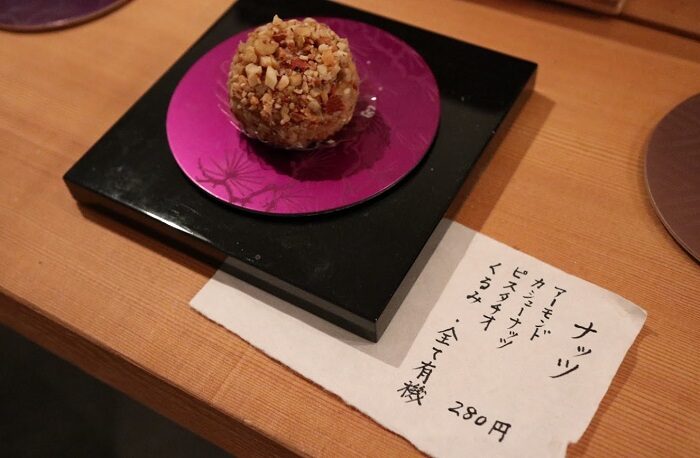 ナッツ
アーモンド
カシューナッツ
ピスタチオ
くるみ
・全て有機
280円